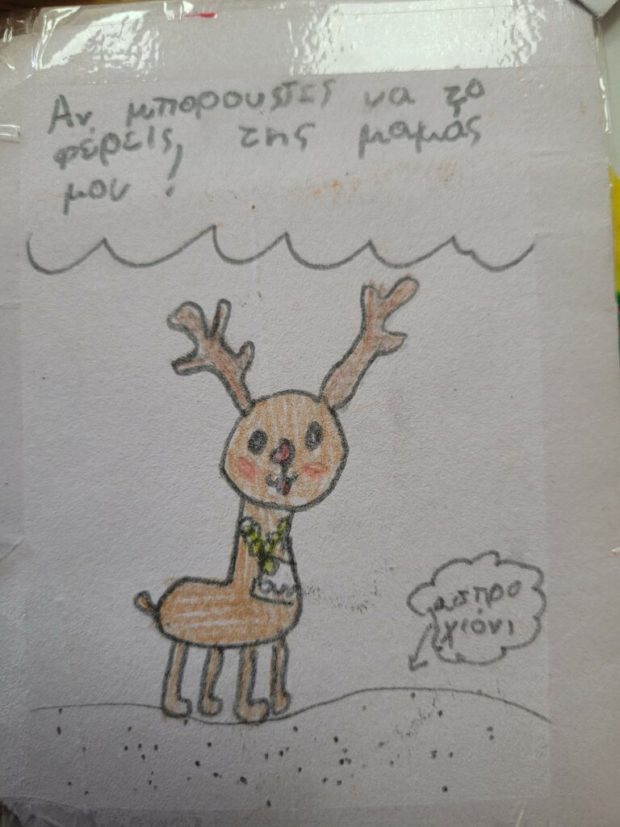 Αν μπορουστες να το
φέρεις, της μαμάς
μου!
ασπρο
χιόνι